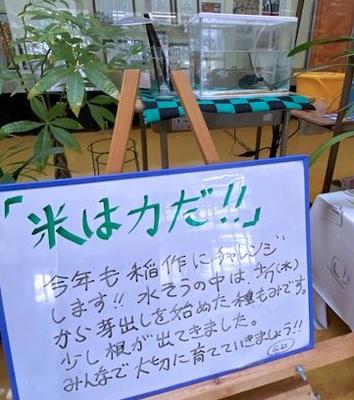 「米は力だ!!」
今年も稲作にチャレンジ
します!! 水そうの中は、 (木)
から芽出しを始めた種もみです。
少し根が出てきました。
みんなで大切に育てていきましょう!!